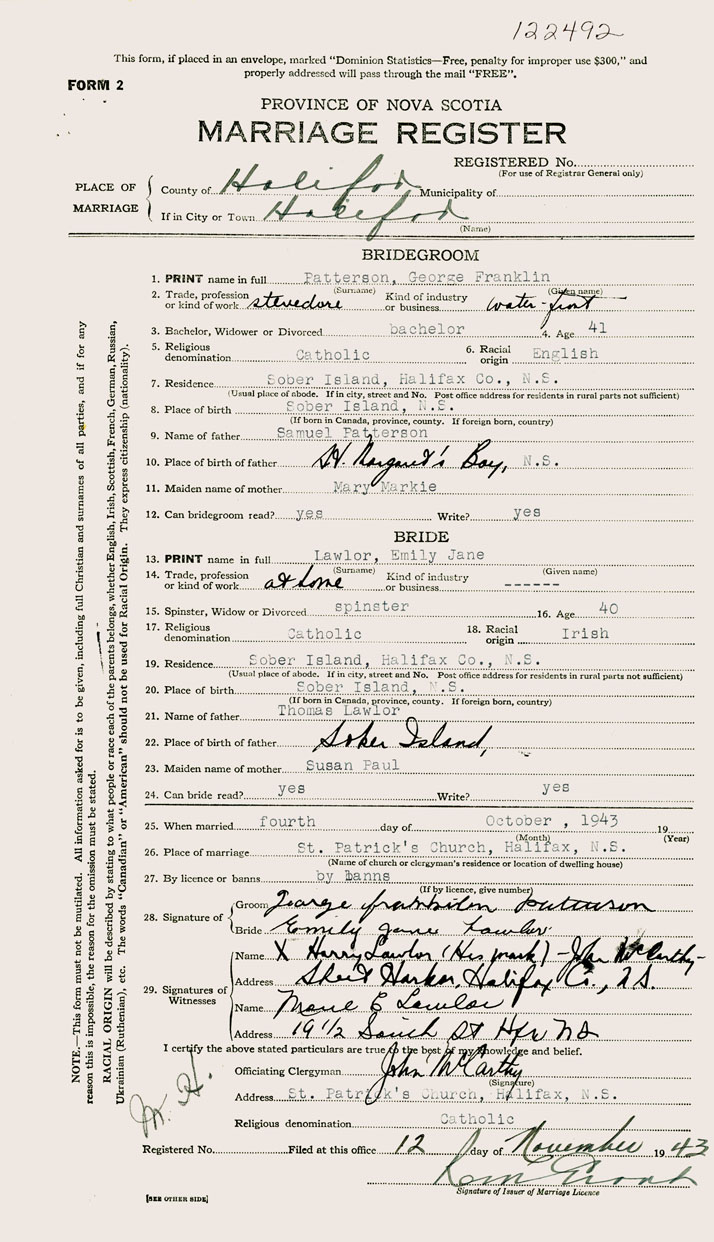 122492
This form, if placed in an envelope, marked "Dominion Statistics—Free, penalty for improper use $300," and
properly addressed will pass through the mail "FREE".
FORM 2
PROVINCE OF NOVA SCOTIA
MARRIAGE REGISTER
REGISTERED No.
(For use of Registrar General only)
PLACE OF MARRIAGE
County of Halifax Municipality of
If in City or Town Halifax
(Name)
BRIDEGROOM
1. PRINT name in full Patterson, George Franklin
(Surname) (Given name)
2. Trade, profession or kind of work stevedore Kind of industry or business water-front
3. Bachelor, Widower or Divorced bachelor 4. Age 41
5. Religious denomination Catholic 6. Racial origin English
7. Residence Sober Island, Halifax Co., N.S.
(Usual place of abode. If in city, street and No. Post office address for residents in rural parts not sufficient)
8. Place of birth Sober Island, N.S.
(If born in Canada, province, county. If foreign born, country)
9. Name of father Samuel Patterson
10. Place of birth of father St. Margaret's Bay, N.S.
11. Maiden name of mother Mary Markie
12. Can bridegroom read? yes Write? yes
BRIDE
13. PRINT name in full Lawlor, Emily Jane
(Surname) (Given name)
14. Trade, profession or kind of work at home Kind of industry or business ------
15. Spinster, Widow or Divorced spinster 16. Age 40
17. Religious denomination Catholic 18. Racial origin Irish
19. Residence Sober Island, Halifax Co., N.S.
(Usual place of abode. If in city, street and No. Post office address for residents in rural parts not sufficient)
20. Place of birth Sober Island, N.S.
(If born in Canada, province, county. If foreign born, country)
21. Name of father Thomas Lawlor
22. Place of birth of father Sober Island,
23. Maiden name of mother Susan Paul
24. Can bride read? yes Write? yes
25. When married fourth day of October , 1943 19
(Month) (Year)
26. Place of marriage St. Patrick's Church, Halifax, N.S.
(Name of church or clergyman's residence or location of dwelling house)
27. By licence or banns by banns
(If by licence, give number)
28. Signature of
Groom George Franklin Patterson
Bride Emily Jane Lawlor
29. Signatures of Witnesses
Name X Harry Lawlor (His mark) - John McCarthy-
Address Sheet Harbor, Halifax Co., N.S.
Name Marie E Lawlor
Address 19 1/2 South St Hfx NS
I certify the above stated particulars are true to the best of my knowledge and belief.
Officiating Clergyman John McCarthy
(Signature)
Address St. Patrick's Church, Halifax, N.S.
Religious denomination Catholic
Registered No. Filed at this office 12 day of November 1943
Signature of Issuer of Marriage Licence
[SEE OTHER SIDE]
NOTE.—This form must not be mutilated. All information asked for is to be given, including full Christian and surnames of all parties, and if for any
reason this is impossible, the reason for the omission must be stated.
RACIAL ORIGIN will be described by stating to what people or race each of the parents belongs, whether English, Irish, Scottish, French, German, Russian,
Ukrainian (Ruthenian), etc. The words "Canadian" or "American" should not be used for Racial Origin. They express citizenship (nationality).